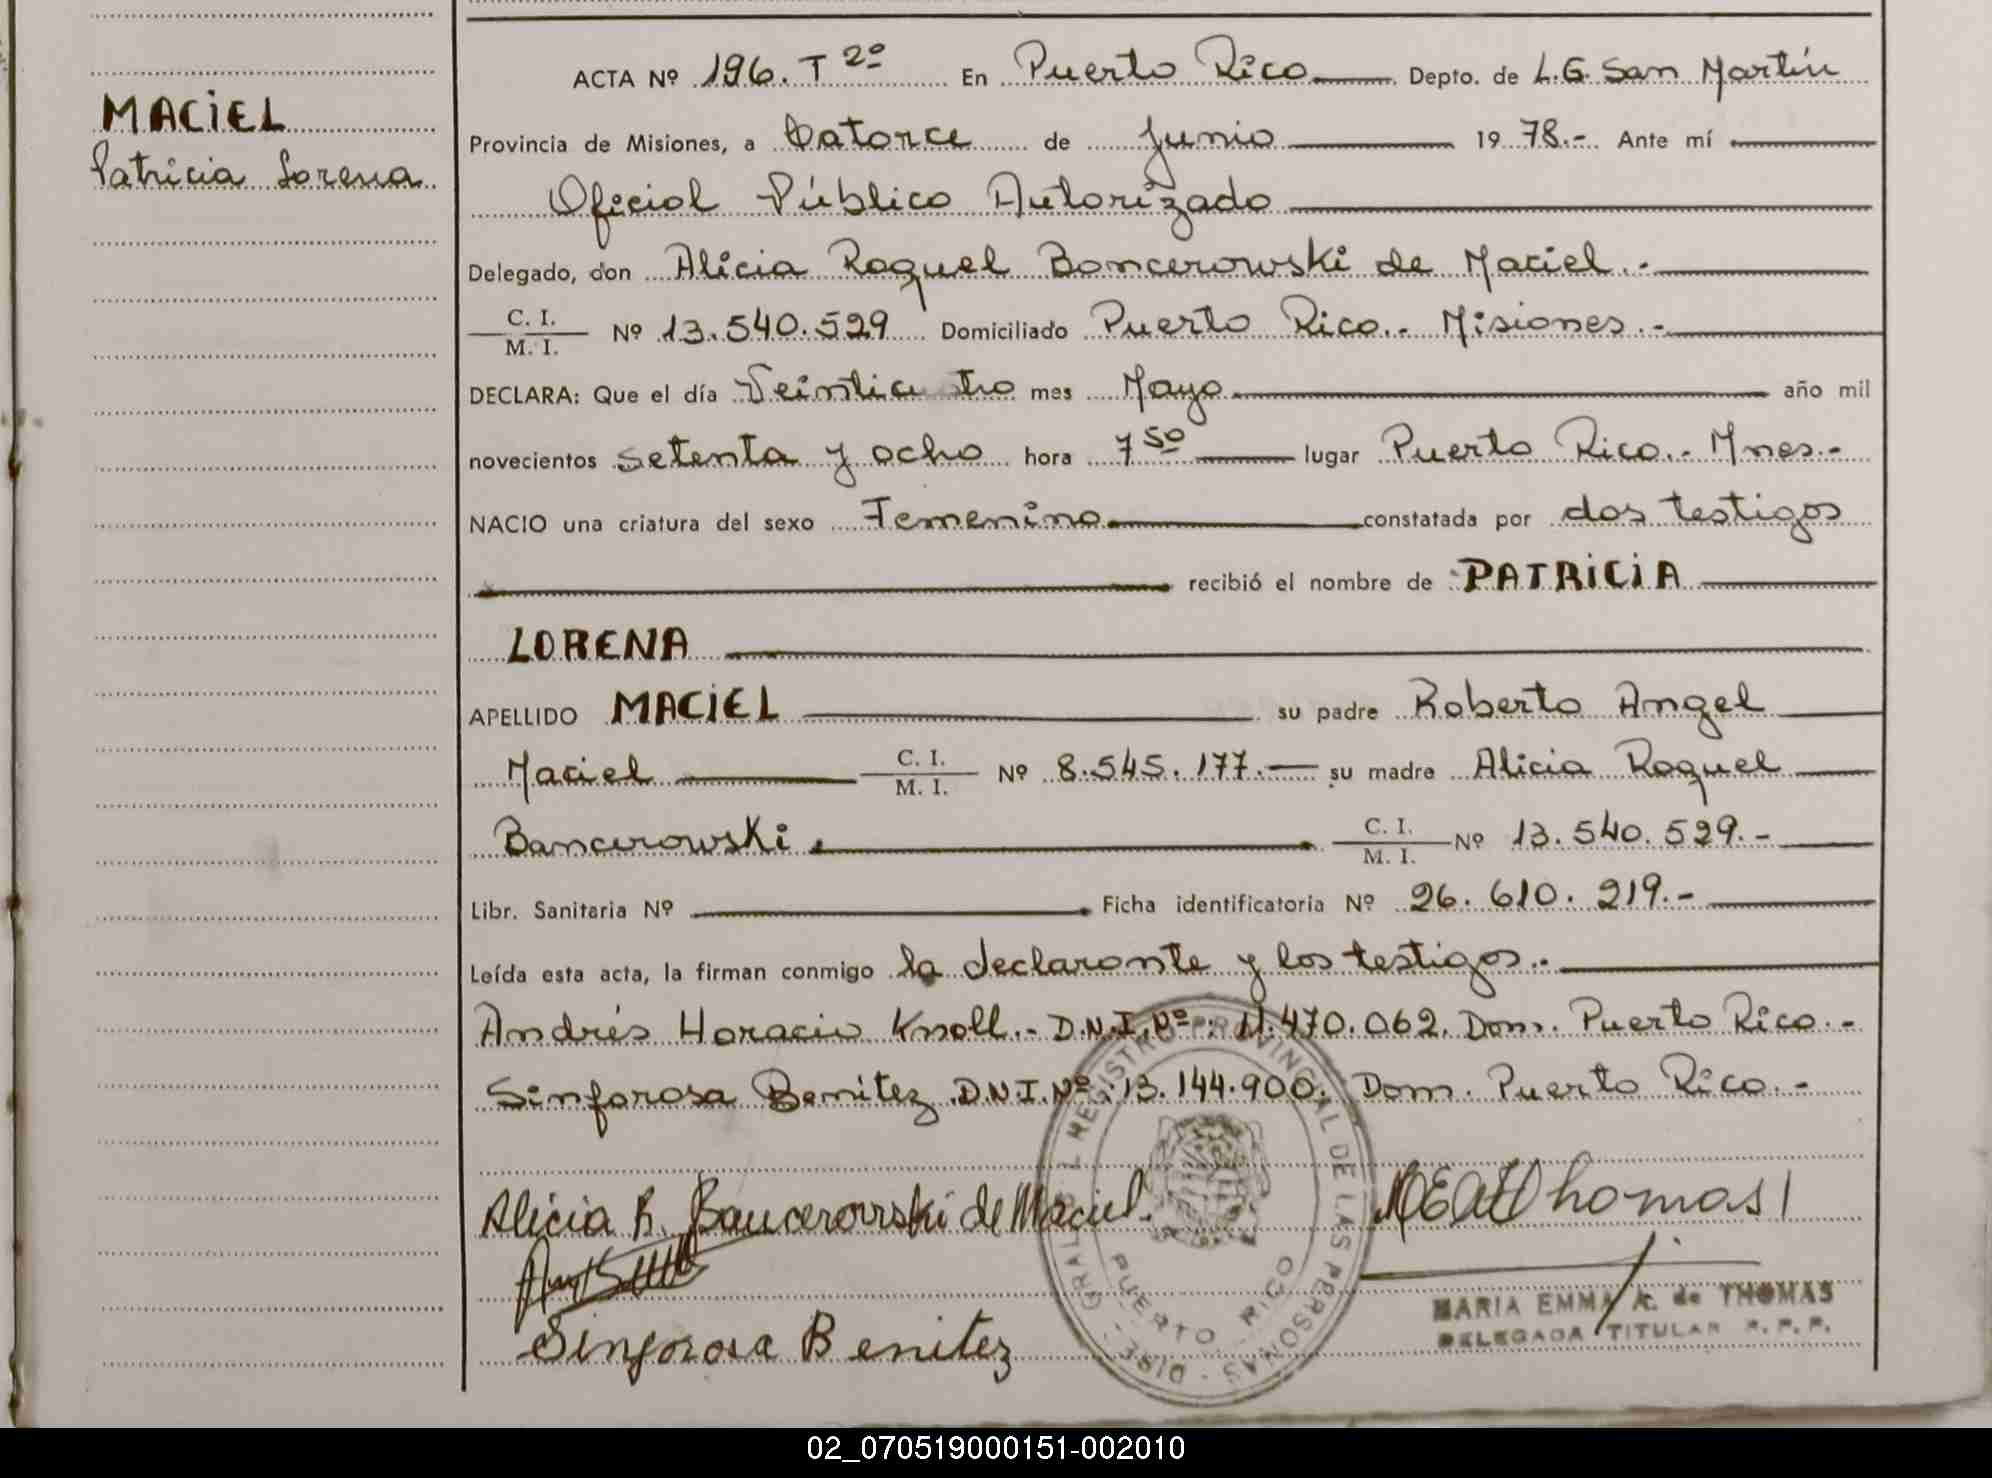 MACIEL
Patricia Lorena
ACTA Nº 196. T 2º En Puerto Rico Depto. de L.G. San Martín
Provincia de Misiones, a Catorce de Junio 19 78.- Ante mí
Oficial Público Autorizado
Delegado, don Alicia Raquel Bancerowski de Maciel.-
C. I.
M. I. Nº 13.540.529 Domiciliado Puerto Rico.- Misiones.-
DECLARA: Que el día Veinticuatro mes Mayo año mil
novecientos setenta y ocho hora 7 50 lugar Puerto Rico.- Mnes.-
NACIO una criatura del sexo Femenino constatada por dos testigos
recibió el nombre de PATRICIA
LORENA
APELLIDO MACIEL su padre Roberto Angel
Maciel C. I. M. I. Nº 8.545.177.- su madre Alicia Raquel
Bancerowski C. I. M. I. Nº 13.540.529.-
Libr. Sanitaria Nº Ficha identificatoria Nº 26.610.219.-
Leída esta acta, la firman conmigo la declarante y los testigos.-
Andrés Horacio Knoll.- D.N.I. Nº: 11.470.062. Dom. Puerto Rico.-
Sinforosa Benítez D.N.I. Nº: 13.144.900. Dom. Puerto Rico.-
Alicia R. Bancerowski de Maciel.
Sinforosa Benitez
REGISTRO PROVINCIAL DE LAS PERSONAS
PUERTO RICO
MARIA EMMA A. de THOMAS
DELEGADA TITULAR R. P. P.
02_070519000151-002010